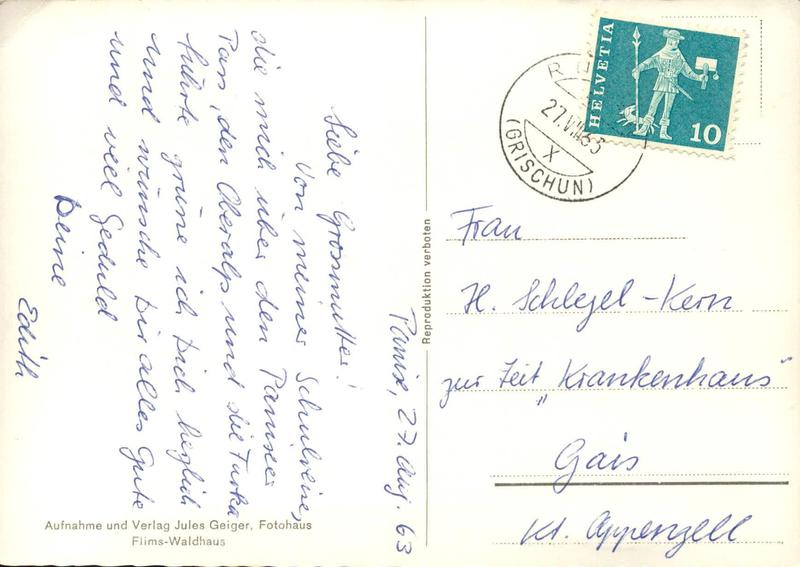 Panix, 27. Aug. 63
Liebe Grossmutter!
Von meiner Schulreise,
die mich über den Panixer
Pass, den Oberalp und die Furka
führte grüsse ich Dich herzlich
und wünsche Dir alles Gute
und viel Geduld
Deine
Edith
Aufnahme und Verlag Jules Geiger, Fotohaus
Flims-Waldhaus
Reproduktion verboten
HELVETIA
10
27.VIII.63
X
(GRISCHUN)
Frau
H. Schlegel-Kern
zur Zeit „Krankenhaus"
Gais
Kt. Appenzell